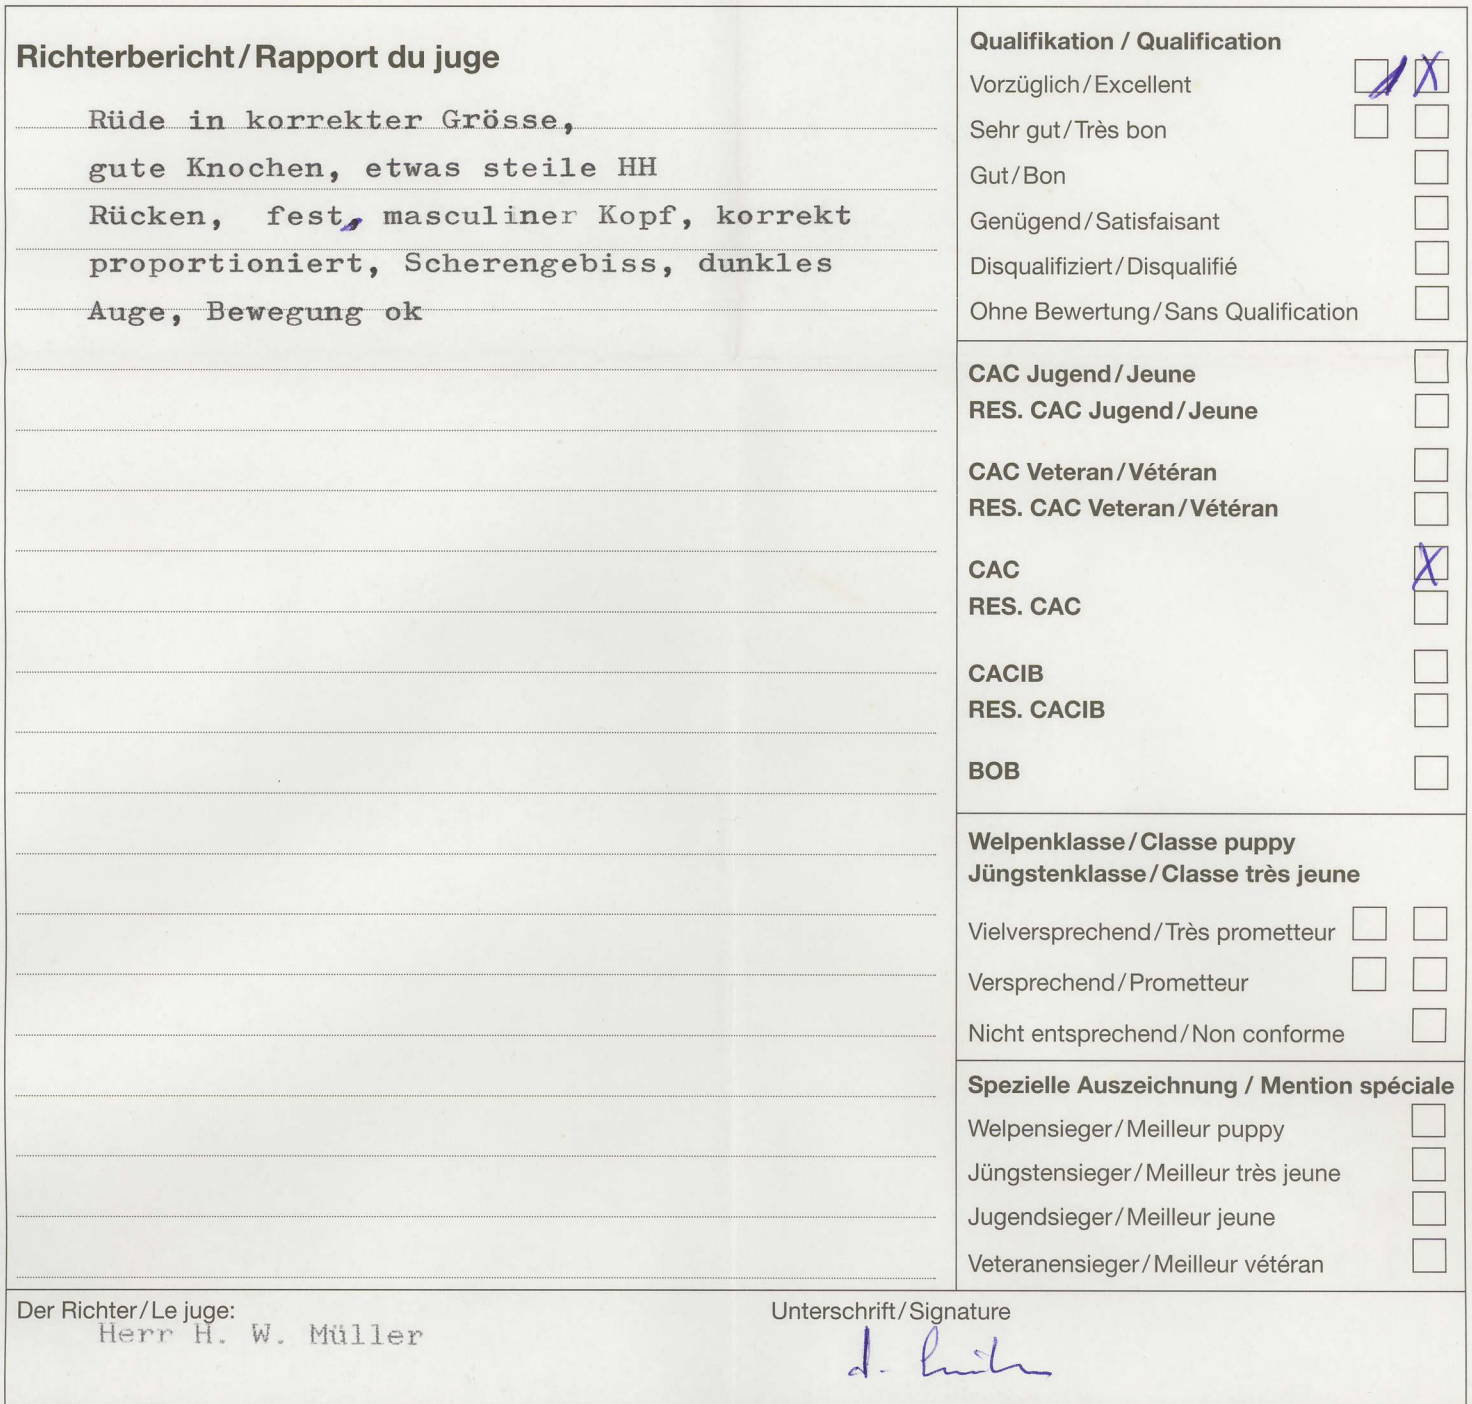 Richterbericht/Rapport du juge
Rüde in korrekter Grösse,
gute Knochen, etwas steile HH
Rücken, fest, masculiner Kopf, korrekt
proportioniert, Scherengebiss, dunkles
Auge, Bewegung ok
Qualifikation / Qualification
Vorzüglich/Excellent 1 X
Sehr gut/Très bon
Gut/Bon
Genügend/Satisfaisant
Disqualifiziert/Disqualifié
Ohne Bewertung/Sans Qualification
CAC Jugend/Jeune
RES. CAC Jugend/Jeune
CAC Veteran/Vétéran
RES. CAC Veteran/Vétéran
CAC X
RES. CAC
CACIB
RES. CACIB
BOB
Welpenklasse/Classe puppy
Jüngstenklasse/Classe très jeune
Vielversprechend/Très prometteur
Versprechend/Prometteur
Nicht entsprechend/Non conforme
Spezielle Auszeichnung / Mention spéciale
Welpensieger/Meilleur puppy
Jüngstensieger/Meilleur très jeune
Jugendsieger/Meilleur jeune
Veteranensieger/Meilleur vétéran
Der Richter/Le juge:
Herr H. W. Müller
Unterschrift/Signature